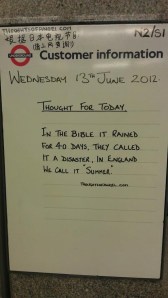 根据日本电视节
N2/S1
UNDERGROUND
Customer information
WEDNESDAY 13TH JUNE 2012.
THOUGHT FOR TODAY.
IN THE BIBLE IT RAINED
FOR 40 DAYS, THEY CALLED
IT A DISASTER, IN ENGLAND
WE CALL IT "SUMMER".